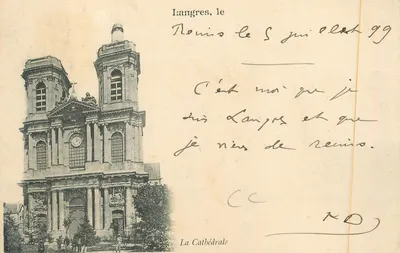 Langres, le
Reims le 5 juillet 99
C'est moi que je
suis Langres et que
je viens de Reims.
CC
ND
La Cathédrale